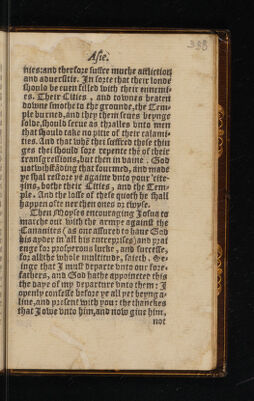 Asie.
388
nies: and therfore suffre muche affliction
and aduersitie. In sorte that their londe
should be euen filled with their ennemi-
es. Their Cities, and townes beaten
downe smothe to the grounde, the Tem-
ple burned, and they them selues beynge
solde, should serue as thralles vnto men
that should take no pitie of their calami-
ties. And that whē thei suffred these thin
ges thei should sore repente thē of their
transgressions, but then in vaine. God
notwithstāding that fourmed, and made
ye shal restore to your cite-
zins, bothe their Cities, and the Tem-
ple. And the losse of these quoth he shall
happen ofter then ones or twyse.
Then Moyses encouraging Josua to
marche out with the armye against the
Cananites (as one assured to haue God
his ayder in all his entreprises) and prai
enge for prosperous lucke, and successe,
for all the whole multitude, saieth. Se-
inge that I must departe vnto our fore-
fathers, and God hathe appoincted this
the daye of my departure vnto them: I
openly confesse before ye all yet beynge a-
liue, and present with you: the thanckes
that I owe vnto him, and now giue him,
not